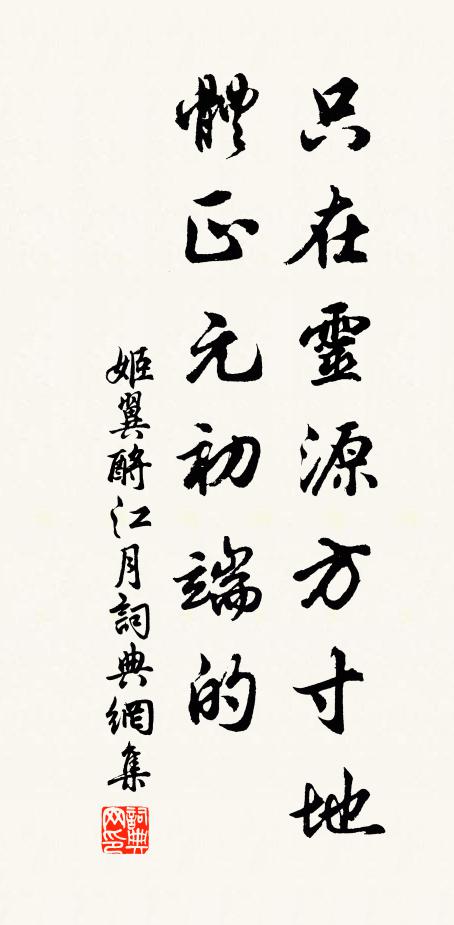 只在靈源方寸地
體正元初端的
姬翼酹江月詞典網集
詞典网印